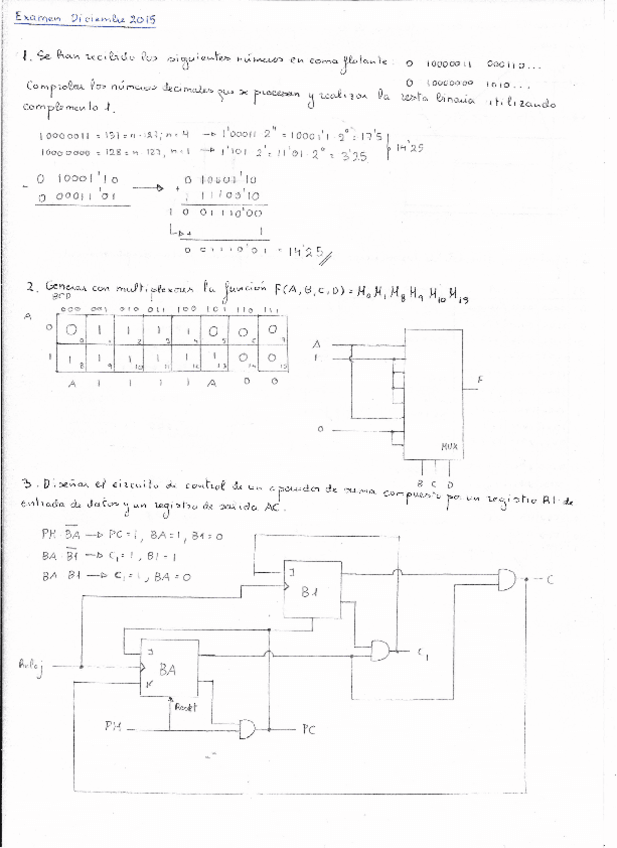 Examen Diciembre 2015
1. Se han recibido los siguientes números en coma flotante: 0 10000011 000110...
0 10000000 1010...
Comprobar los números decimales que se procesan y realizar la resta binaria utilizando
complemento 1.
10000011 = 131 = n + 127; n = 4 → 1'00011 · 2⁴ = 10001'1 · 2⁰ = 17'5
10000000 = 128 = n + 127, n = 1 → 1'101 · 2¹ = 11'01 · 2⁰ = 3'25
14'25
- 0 10001'10 → 0 10001'10
0 00011'01 + 1 11100'10
1 0 01110'00
+ 1
0 01110'01 = 14'25
2. Generar con multiplexores la función F(A,B,C,D) =
BCD
000 001 010 011 100 101 110 111
A
0 0 1 1 1 1 0 0 0
1 1 1 1 1 1 1 0 0
8 9 10 11 12 13 14 15
A 1 1 1 1 A 0 0
A
1
0
F
MUX
B C D
3. Diseñar el circuito de control de un operador de suma compuesto por un registro B1 de
entrada de datos y un registro de salida AC.
PM B̅A̅ → PC = 1, BA = 1, B1 = 0
BA B̅1̅ → C₁ = 1, B1 = 1
BA B1 → C₁ = 1, BA = 0
J
B1
C
C₁
Reloj
J
BA
K
Reset
PM
PC